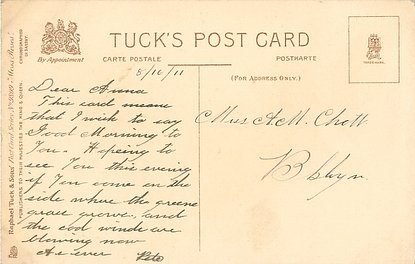 TUCK'S POST CARD
CARTE POSTALE
POSTKARTE
By Appointment
(FOR ADDRESS ONLY.)
TRADE MARK
8/10/11
Dear Anna
This card means
that I wish to say
Good Morning to
You. Hopeing to
see You this evening
if You come on the
side where the greene
grass grows, and
the cool winds are
blowing now
As ever Pete
Miss A.M. Chott
B'klyn.
Raphael Tuck & Sons'
"PUBLISHERS TO THEIR MAJESTIES THE KING & QUEEN.